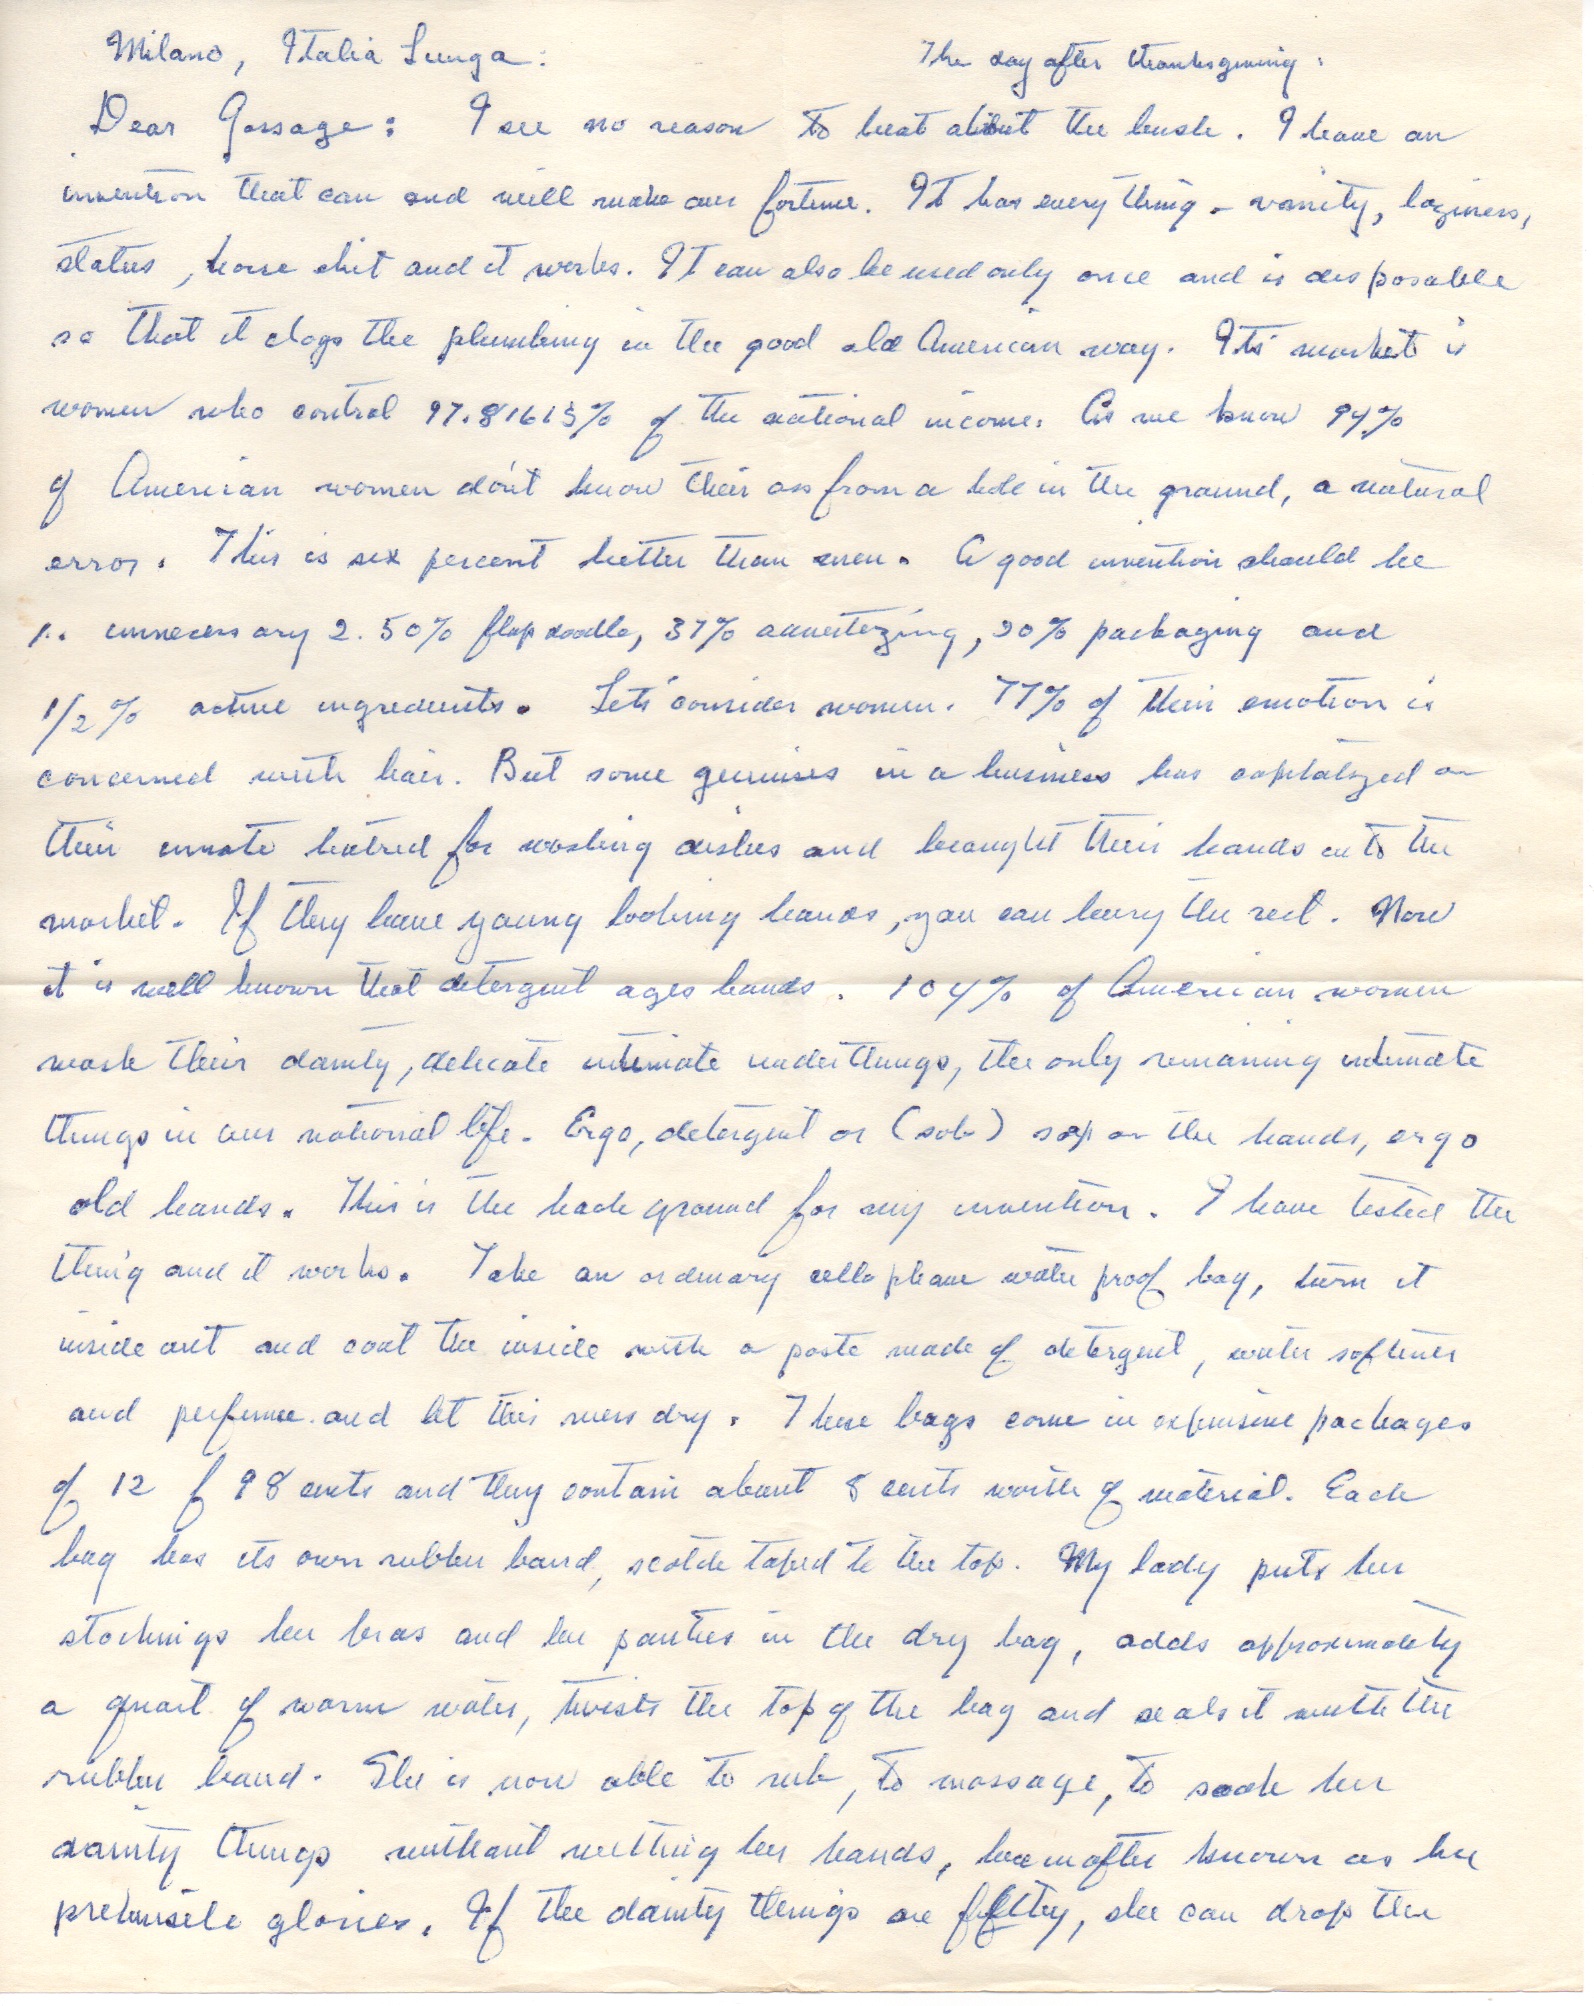 Milano, Italia Lunga: The day after thanksgiving:
Dear Gossage: I see no reason to beat about the bush. I have an
invention that can and will make our fortune. It has every thing - vanity, laziness,
status, horse shit and it works. It can also be used only once and is disposable
so that it clogs the plumbing in the good old American way. Its' market is
women who control 97.81613% of the national income. As we know 94%
of American women don't know their ass from a hole in the ground, a natural
error. This is six percent better than even. A good invention should be
1. unnecessary 2. 50% flap doodle, 37% advertizing, 20% packaging and
1/2% active ingredients. Lets' consider women. 77% of their emotion is
concerned with hair. But some geniuses in a business has capitalized on
their innate hatred for washing dishes and brought their hands into the
market. If they have young looking hands, you can bury the rest. Now
it is well known that detergent ages hands. 104% of American women
wash their dainty, delicate intimate underthings, the only remaining intimate
things in our national life. Ergo, detergent or (sob) soap on the hands, ergo
old hands. This is the back ground for my invention. I have tested the
thing and it works. Take an ordinary cellophane water proof bag, turn it
inside out and coat the inside with a paste made of detergent, water softener
and perfume and let this mess dry. These bags come in expensive packages
of 12 f 98 cents and they contain about 8 cents worth of material. Each
bag has its own rubber band, scotch taped to the top. My lady puts her
stockings her bras and her panties in the dry bag, adds approximately
a quart of warm water, twists the top of the bag and seals it with the
rubber band. She is now able to rub, to massage, to soak her
dainty things without wetting her hands, hereinafter known as her
prehensile glories. If the dainty things are filthy, she can drop the